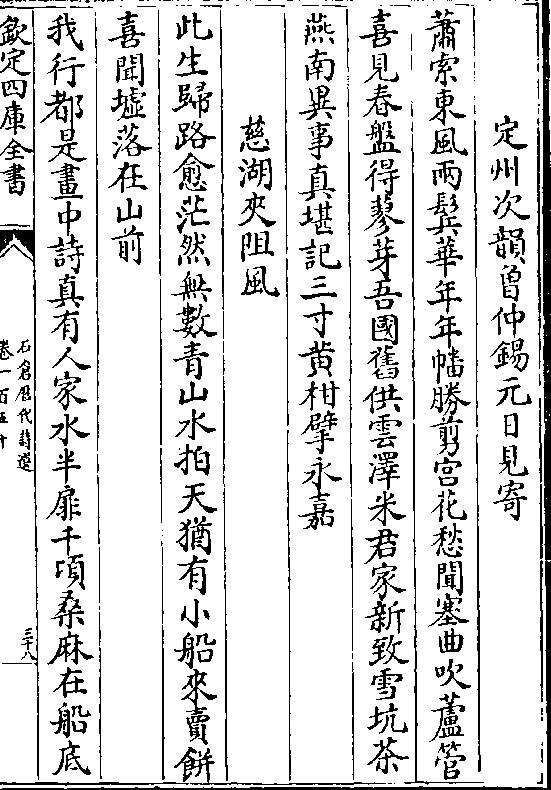 定州次韻曾仲錫元日見寄
蕭索東風兩鬂華年年幡勝剪宮花愁聞塞曲吹蘆管
喜見春盤得蓼芽吾國舊供雲澤米君家新致雪坑茶
燕南異事真堪記三寸黄柑擘永嘉
慈湖夾阻風
此生歸路愈茫然無數青山水拍天猶有小船來賣餅
喜聞墟落在山前
我行都是畫中詩真有人家水半扉千頃桑麻在船底
欽定四庫全書
石倉歴代詩選
卷一百五十
三十八